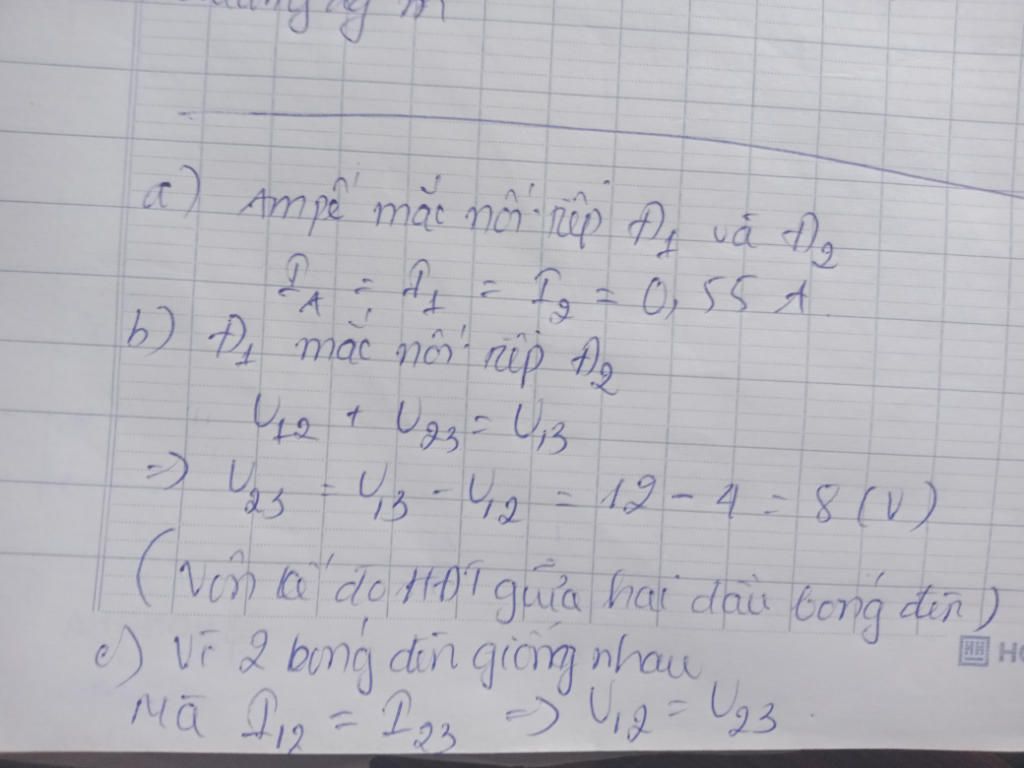 a) Ampế mắc nối tiếp Đ1 và Đ2
I_A = I_1 = I_2 = 0,55 A
b) Đ1 mắc nối tiếp Đ2
U_12 + U_23 = U_13
=> U_23 = U_13 - U_12 = 12 - 4 = 8 (V)
(Vôn kế đo HĐT giữa hai đầu bóng đèn)
c) Vì 2 bóng đèn giống nhau
Mà I_12 = I_23 => U_12 = U_23.